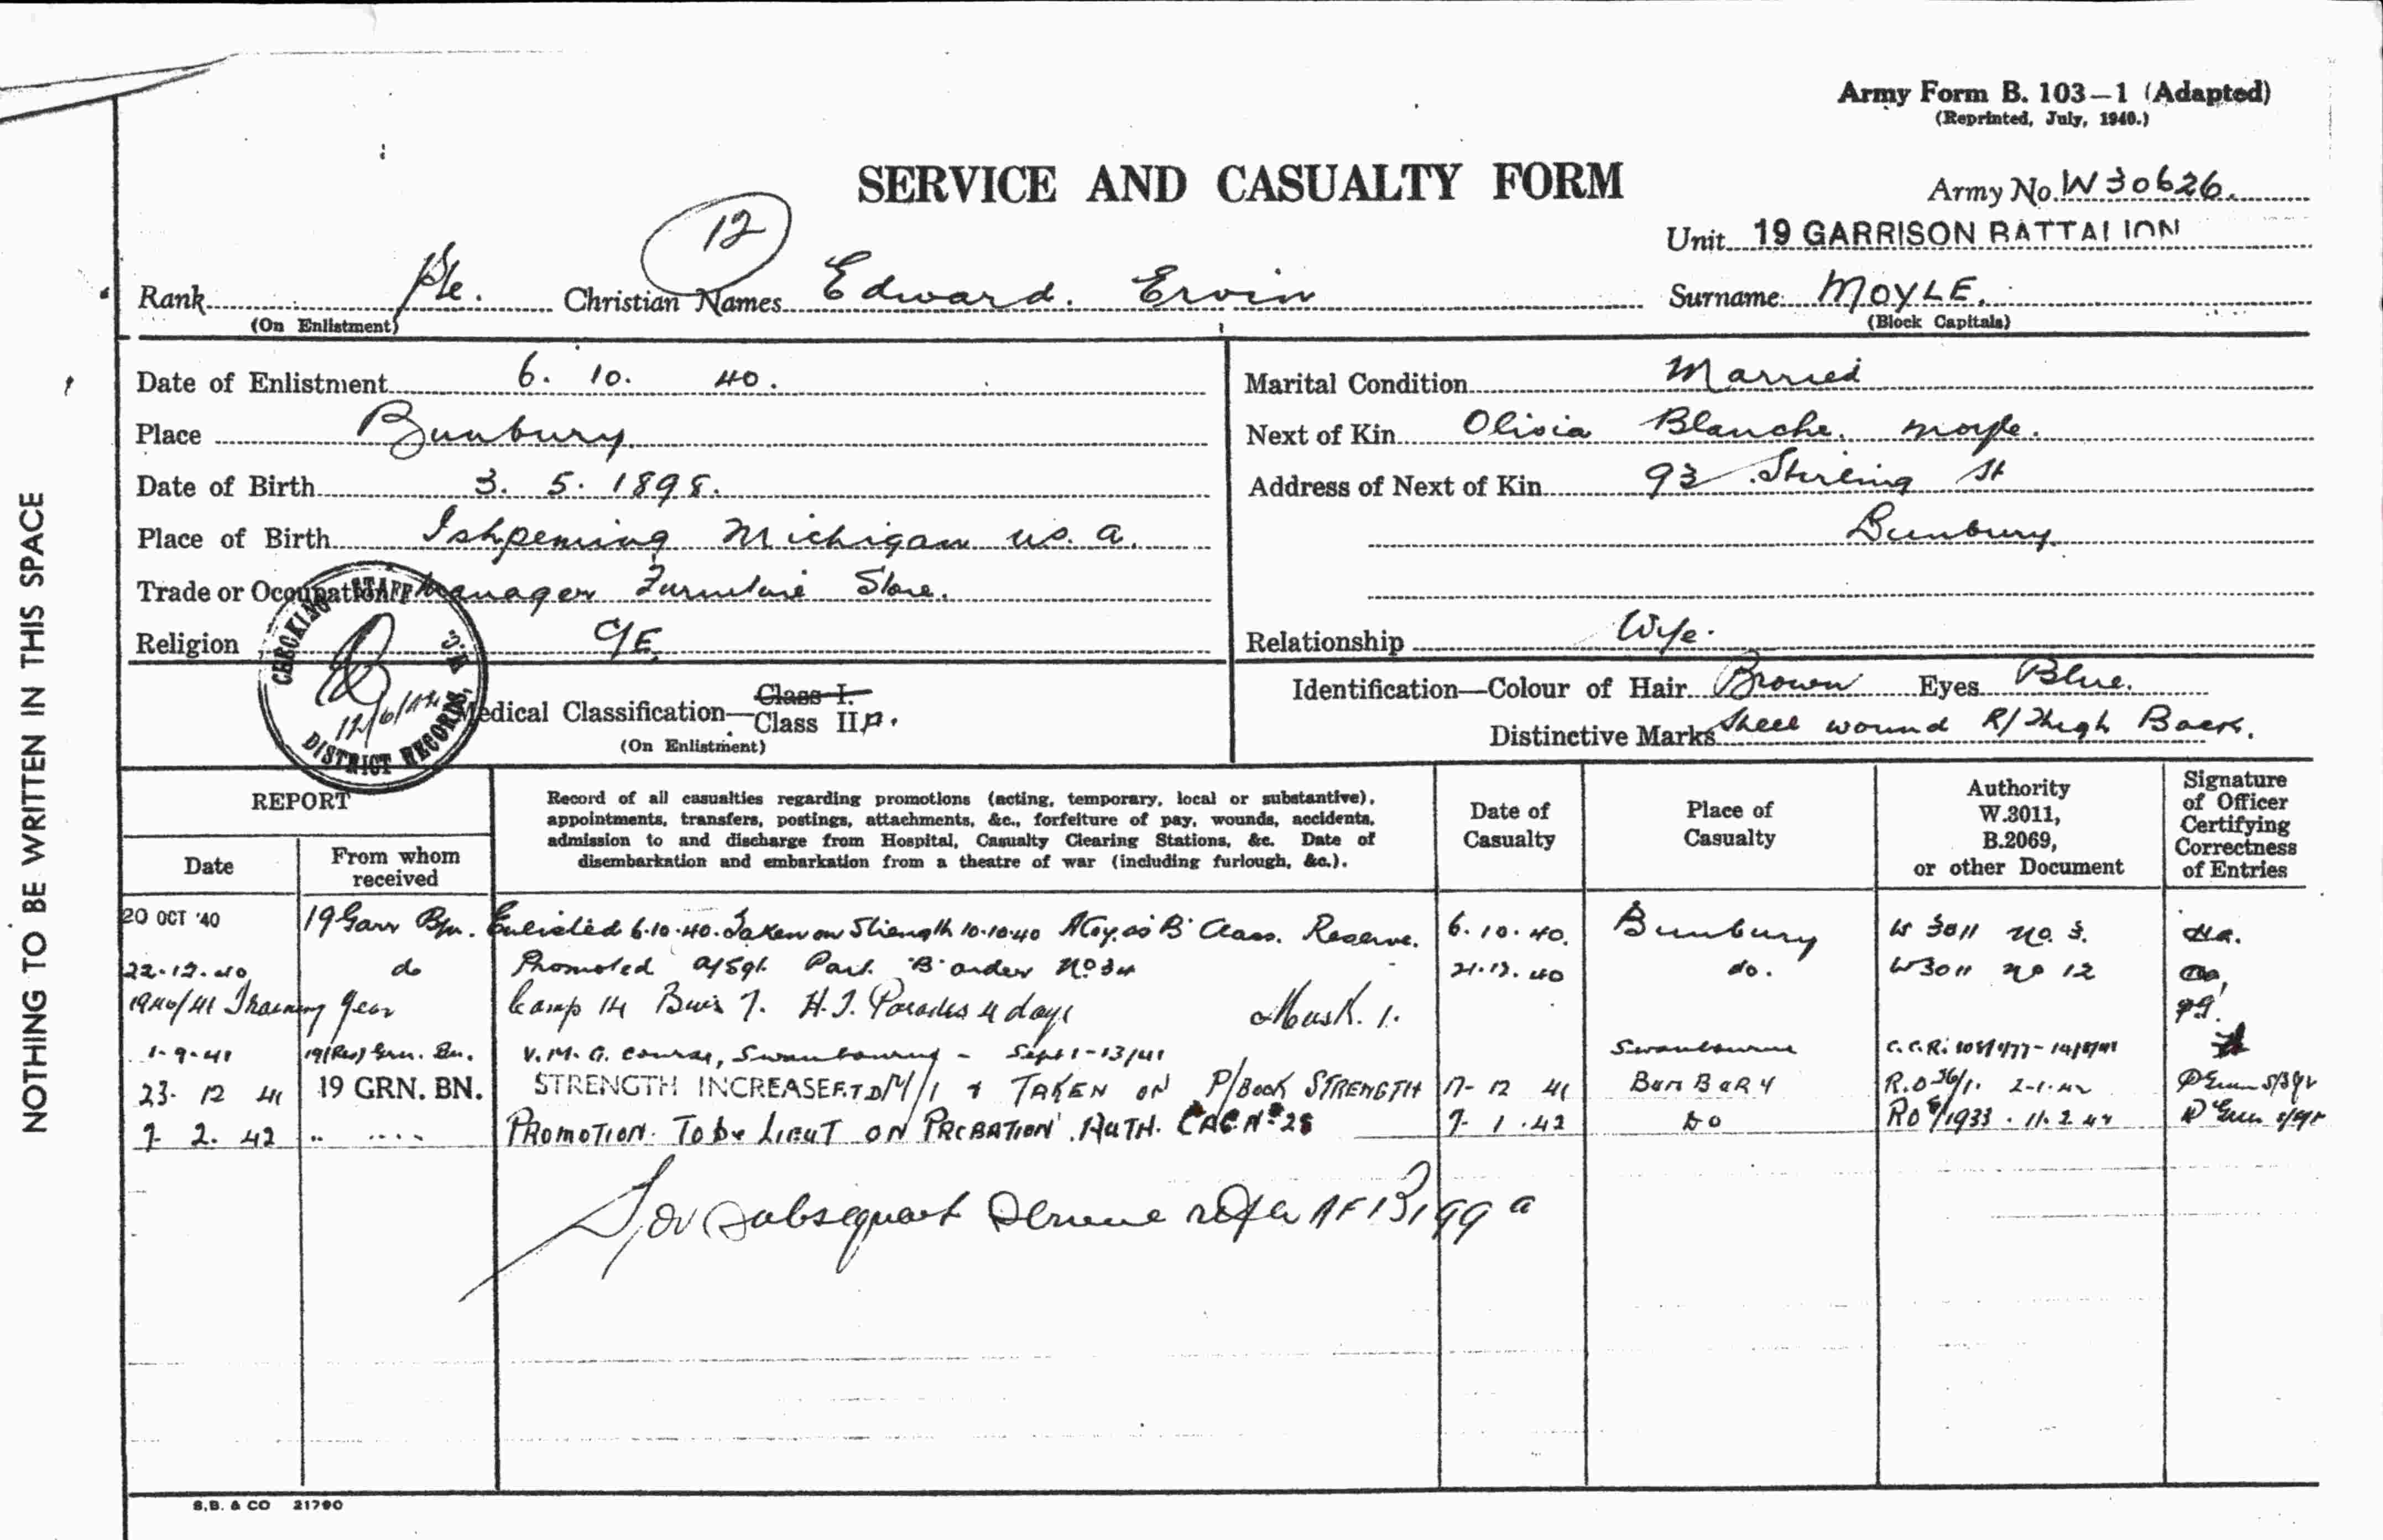 Army Form B. 103—1 (Adapted)
(Reprinted, July, 1940.)
SERVICE AND CASUALTY FORM
Army No. W30626.
12
Unit 19 GARRISON BATTALION
Rank Pte. Christian Names Edward. Ervin Surname MOYLE.
(On Enlistment) (Block Capitals)
Date of Enlistment 6. 10. 40.
Place Bunbury.
Date of Birth 3. 5. 1898.
Place of Birth Ishpeming Michigan U.S.A.
Trade or Occupation Manager Furniture Store.
Religion C/E.
Marital Condition Married
Next of Kin Olivia Blanche. Moyle.
Address of Next of Kin 93 Stirling St
Bunbury.
Relationship Wife.
CHECKING STAFF
12/6/44
DISTRICT RECORDS,
Medical Classification—Class I.
Class II A.
(On Enlistment)
Identification—Colour of Hair Brown Eyes Blue.
Distinctive Marks Shell wound R/Thigh Back.
NOTHING TO BE WRITTEN IN THIS SPACE
REPORT
Date
From whom received
Record of all casualties regarding promotions (acting, temporary, local or substantive),
appointments, transfers, postings, attachments, &c., forfeiture of pay, wounds, accidents,
admission to and discharge from Hospital, Casualty Clearing Stations, &c. Date of
disembarkation and embarkation from a theatre of war (including furlough, &c.).
Date of Casualty
Place of Casualty
Authority
W.3011,
B.2069,
or other Document
Signature
of Officer
Certifying
Correctness
of Entries
20 OCT '40 19 Garr Bn. Enlisted 6.10.40. Taken on Strength 10.10.40 A Coy. as 'B' Class. Reserve. 6.10.40. Bunbury W 3011 No. 3.
22.12.40 do Promoted a/Sgt. Part 'B' order No 34 21.12.40 do. W3011 No 12
1940/41 Training Year Camp 14 Bivis 7. H.T. Parades 4 days Musk. 1.
1-9-41 19(Res) Grn. Bn. V.M.G. Course, Swanbourne - Sept 1-13/41 Swanbourne
23. 12 41 19 GRN. BN. STRENGTH INCREASE F.T.D M/1 & TAKEN ON P/BOOK STRENGTH 17-12 41 BUNBURY R.O 36/1. 2-1-42
7. 2. 42 " " PROMOTION. To be LIEUT ON PROBATION. AUTH. No 28 7-1.42 DO RO 8/1933. 11.2.42
For subsequent Service refer AF B199a
S.B. & CO 21790